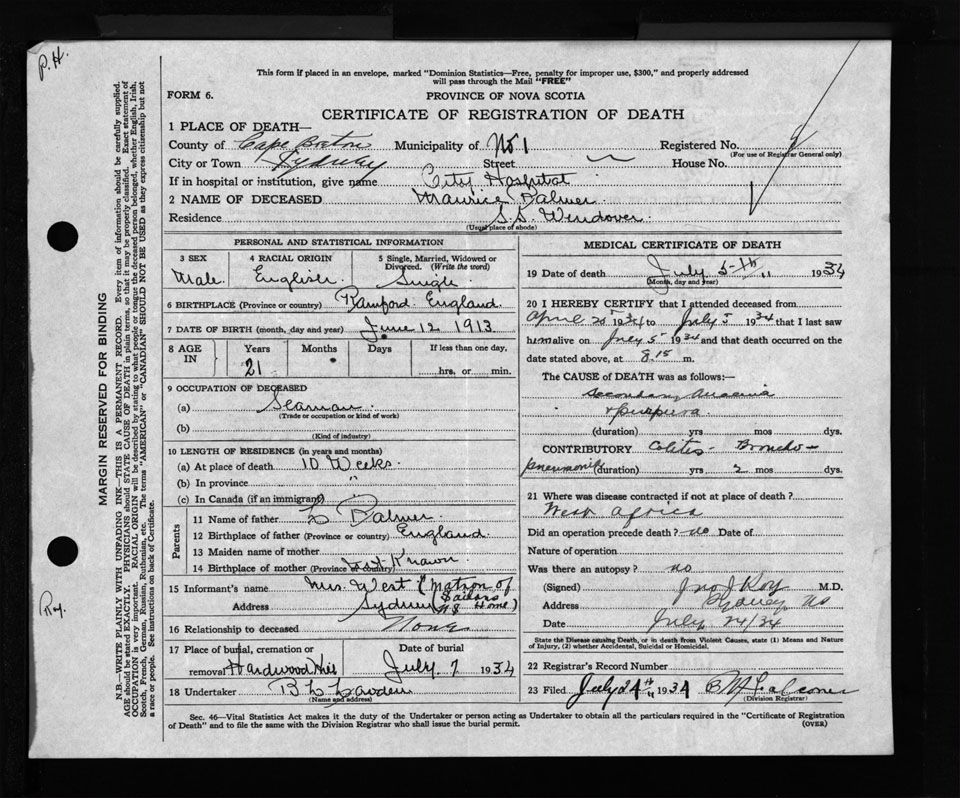 P.H.
This form if placed in an envelope, marked "Dominion Statistics—Free, penalty for improper use, $300," and properly addressed
will pass through the Mail "FREE"
FORM 6.
PROVINCE OF NOVA SCOTIA
CERTIFICATE OF REGISTRATION OF DEATH
1 PLACE OF DEATH—
County of Cape Breton Municipality of No 1 Registered No.
(For use of Registrar General only)
City or Town Sydney Street House No.
If in hospital or institution, give name City Hospital
2 NAME OF DECEASED Maurice Palmer
Residence S.S. Windover.
(Usual place of abode)
PERSONAL AND STATISTICAL INFORMATION
3 SEX 4 RACIAL ORIGIN 5 Single, Married, Widowed or Divorced. (Write the word)
Male English Single
6 BIRTHPLACE (Province or country) England
7 DATE OF BIRTH (month, day and year) June 12 1913
8 AGE IN Years Months Days If less than one day,
21 hrs. or min.
9 OCCUPATION OF DECEASED
(a) Seaman.
(Trade or occupation or kind of work)
(b)
(Kind of industry)
10 LENGTH OF RESIDENCE (in years and months)
(a) At place of death 10 Weeks.
(b) In province "
(c) In Canada (if an immigrant)
Parents
11 Name of father L Palmer
12 Birthplace of father (Province or country) England.
13 Maiden name of mother
14 Birthplace of mother (Province or country) Not Known
15 Informant's name Mrs. West (Matron of
Address Sydney NS Home)
16 Relationship to deceased None
17 Place of burial, cremation or removal Hardwood Hill Date of burial July 7 1934
18 Undertaker
(Name and address)
MEDICAL CERTIFICATE OF DEATH
19 Date of death July 5th " 1934
(Month, day and year)
20 I HEREBY CERTIFY that I attended deceased from
April 25 1934 to July 5 1934 that I last saw
him alive on July 5 1934 and that death occurred on the
date stated above, at 8.15 m.
The CAUSE OF DEATH was as follows:—
Secondary Anaemia
& purpura.
(duration) yrs mos dys.
CONTRIBUTORY Colitis Broncho-
pneumonia (duration) yrs 2 mos dys.
21 Where was disease contracted if not at place of death?
West Africa
Did an operation precede death? no Date of
Nature of operation
Was there an autopsy? no
(Signed) Jno J Roy M.D.
Address Sydney NS
Date July 24/34
State the Disease causing Death, or in death from Violent Causes, state (1) Means and Nature
of Injury, (2) whether Accidental, Suicidal or Homicidal.
22 Registrar's Record Number
23 Filed July 24th " 1934 Falconer
(Division Registrar)
Sec. 46—Vital Statistics Act makes it the duty of the Undertaker or person acting as Undertaker to obtain all the particulars required in the "Certificate of Registration
of Death" and to file the same with the Division Registrar who shall issue the burial permit.
(OVER)
MARGIN RESERVED FOR BINDING
N.B.—WRITE PLAINLY WITH UNFADING INK—THIS IS A PERMANENT RECORD. Every item of information should be carefully supplied.
AGE should be stated EXACTLY. PHYSICIANS should STATE CAUSE OF DEATH in plain terms, so that it may be properly classified. Exact statement of
OCCUPATION is very important. RACIAL ORIGIN will be described by stating to what people or tongue the deceased person belonged, whether English, Irish,
Scotch, French, German, Russian, Ruthenian, etc. The terms "AMERICAN" or "CANADIAN" SHOULD NOT BE USED as they express citizenship but not
a race or people. See instructions on back of Certificate.
Roy.